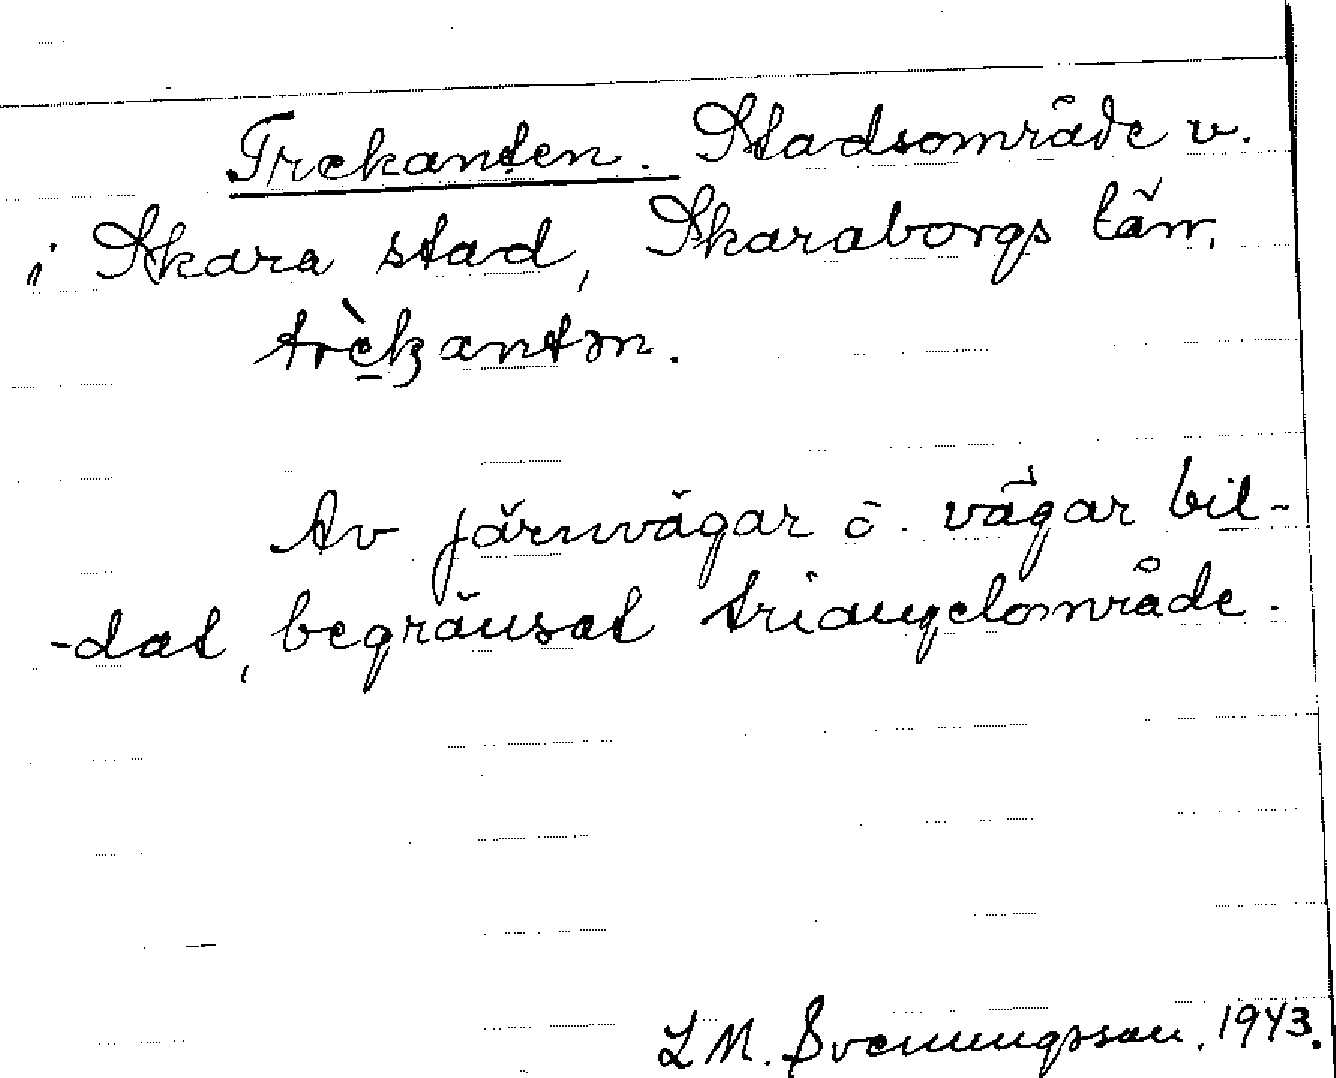 Trekanten. Stadsområde v.
i Skara stad, Skaraborgs län.
trèkantən.
Av järnvägar o. vägar bil-
-dat, begränsat triangelområde.
L M. Svenungsson. 1943.